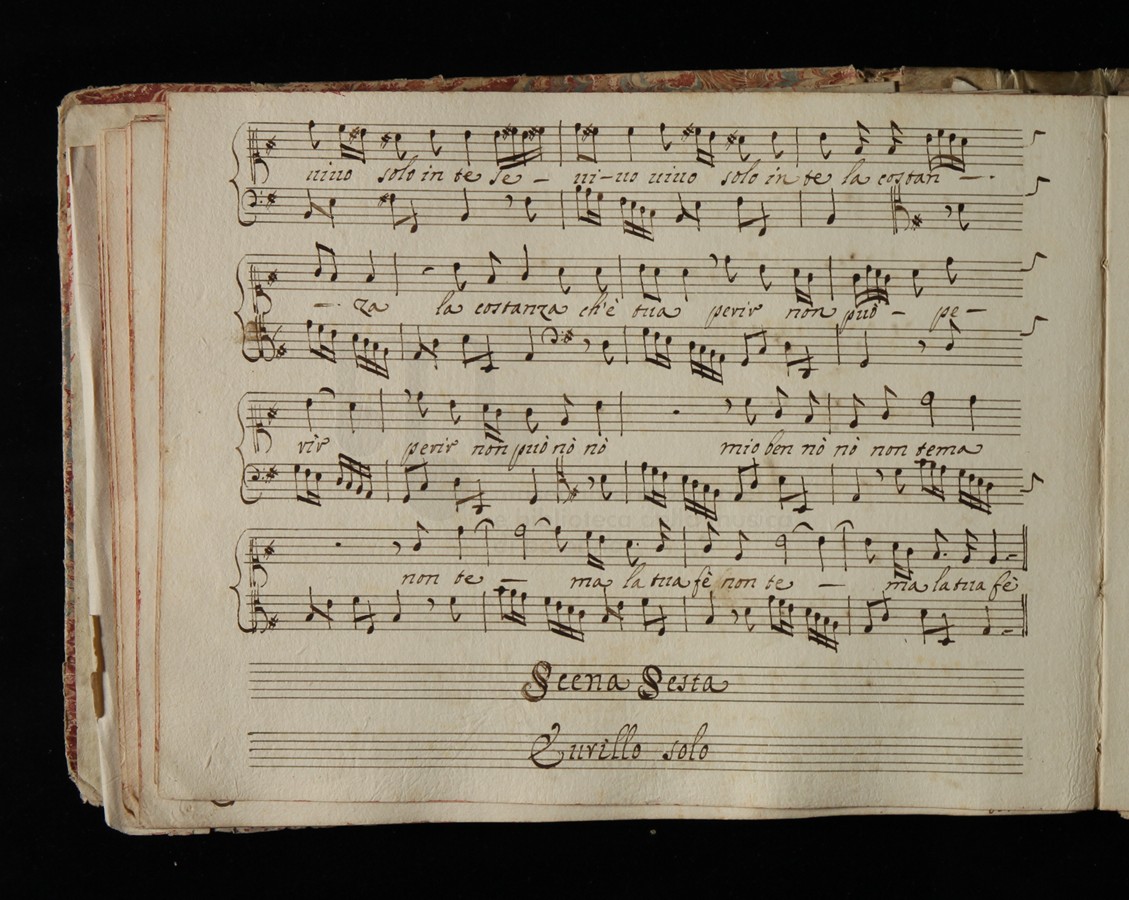 uiuo solo in te se – ui-uo uiuo solo in te la costan –
– za la costanza ch'è tua perir non può – pe –
rir perir non può nò nò mio ben nò nò non tema
non te – ma la tua fè non te – ma la tua fè
Scena Sesta
Lurillo solo